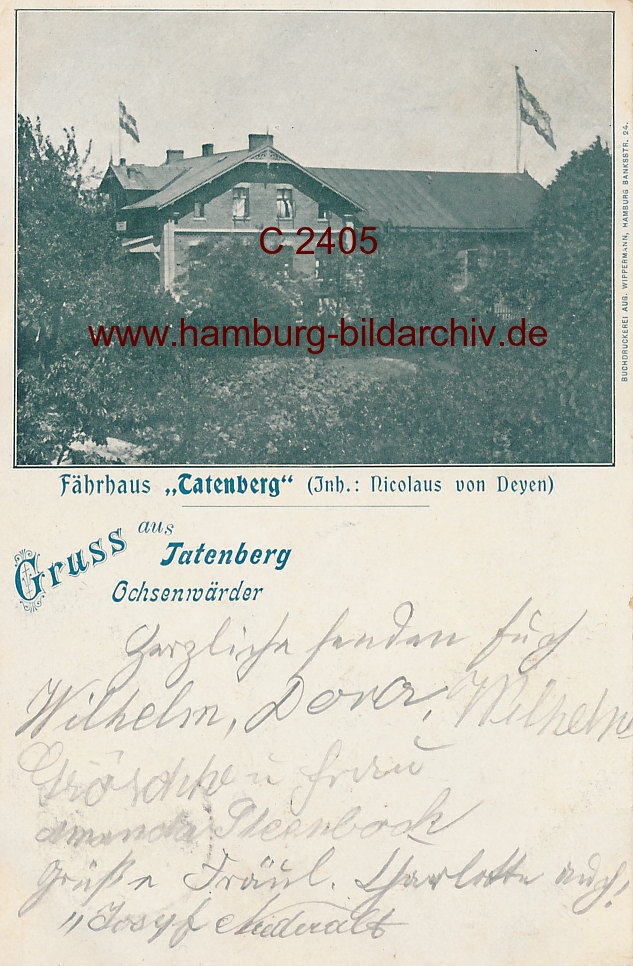 C 2405
www.hamburg-bildarchiv.de
BUCHDRUCKEREI AUG. WIPPERMANN, HAMBURG BANKSSTR. 24.
Fährhaus „Tatenberg“ (Inh.: Nicolaus von Deyen)
Gruss aus
Tatenberg
Ochsenwärder
Herzliche senden Euch
Wilhelm, Dora, Wilhelm
u Frau
Amanda Steenbock
Grüße Fräul. Charlotte auch,
" Josyf